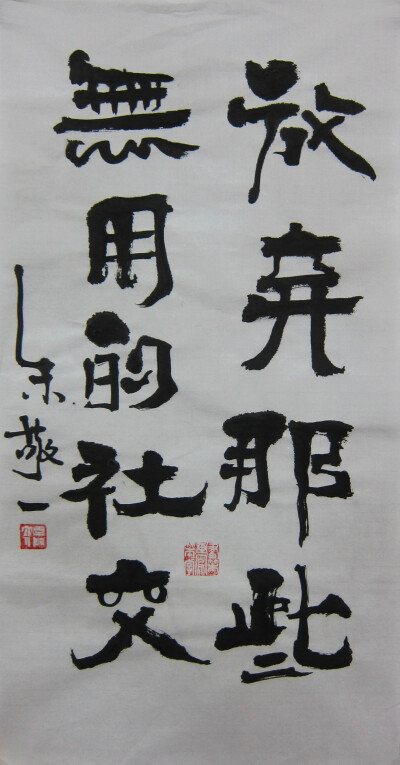 放弃那些
無用的社交
朱敬一